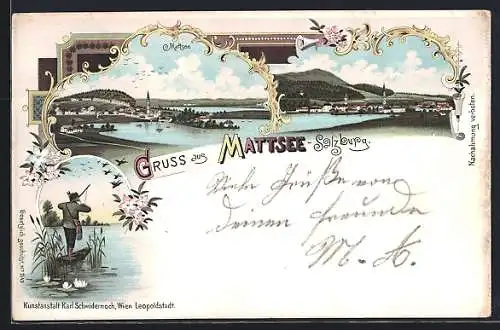 Mattsee
GRUSS aus MATTSEE-Salzburg.
Nachahmung verboten.
Viele Grüße von
deinem Freunde
M. A.
Gesetzlich geschützt
Kunstanstalt Karl Schwidernoch, Wien Leopoldstadt.